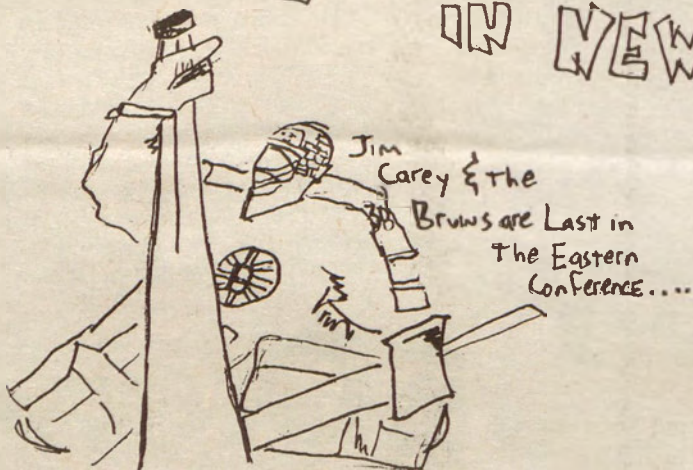 IN NEW
Jim
Carey & the
Bruins are Last in
The Eastern
Conference....